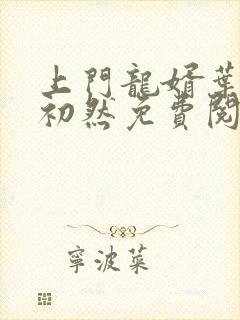 上門龍婿葉
初然免費閱
寧波菜